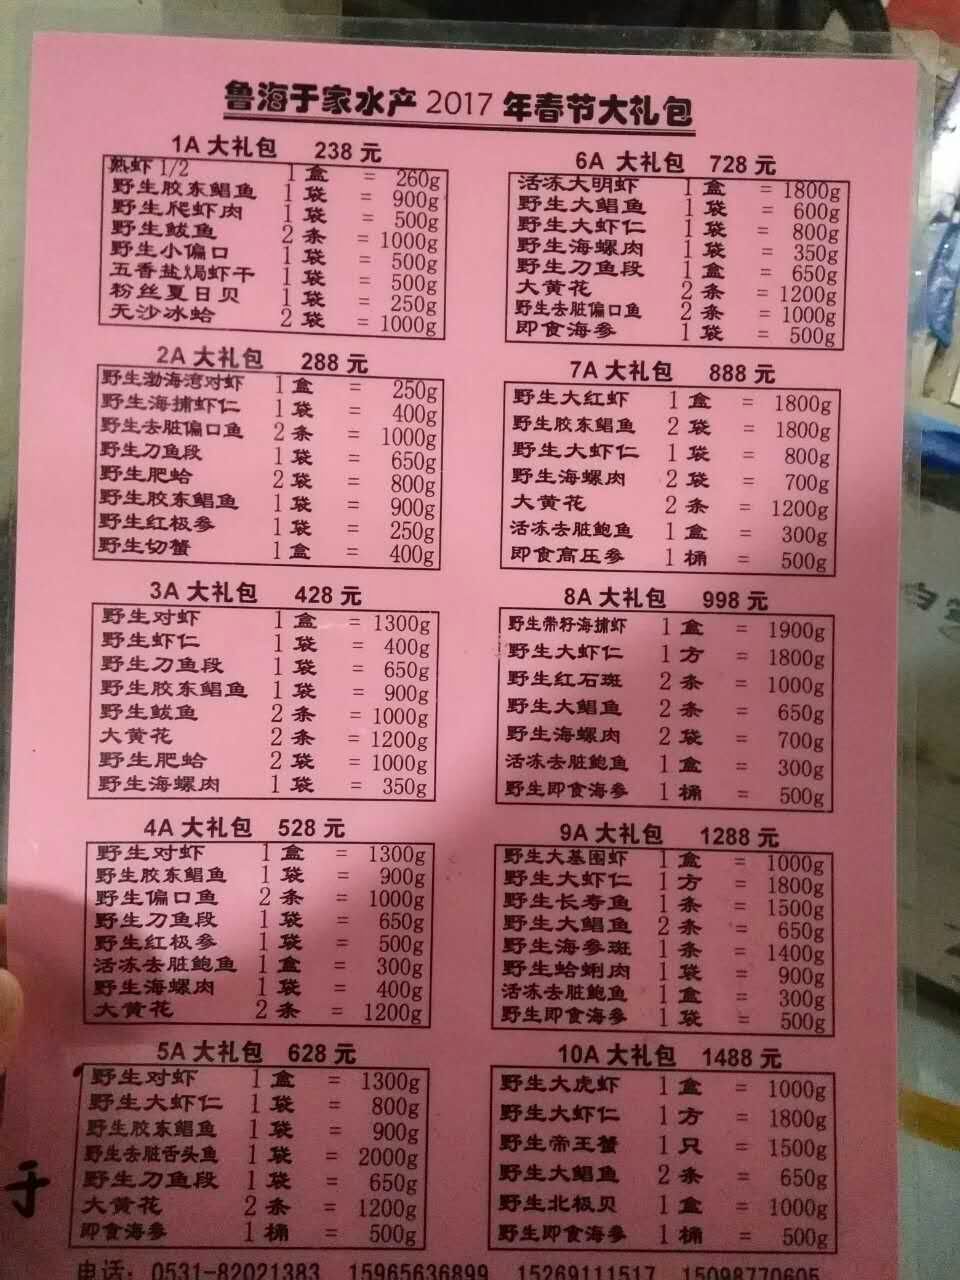 鲁海于家水产 2017 年春节大礼包
1A 大礼包 238 元
熟虾 1/2 1 盒 = 260g
野生胶东鲳鱼 1 袋 = 900g
野生爬虾肉 1 袋 = 500g
野生鲅鱼 2 条 = 1000g
野生小偏口 1 袋 = 500g
五香盐焗虾干 1 袋 = 500g
粉丝夏日贝 1 袋 = 250g
无沙冰蛤 2 袋 = 1000g
2A 大礼包 288 元
野生渤海湾对虾 1 盒 = 250g
野生海捕虾仁 1 袋 = 400g
野生去脏偏口鱼 2 条 = 1000g
野生刀鱼段 1 袋 = 650g
野生肥蛤 2 袋 = 800g
野生胶东鲳鱼 1 袋 = 900g
野生红极参 1 袋 = 250g
野生切蟹 1 盒 = 400g
3A 大礼包 428 元
野生对虾 1 盒 = 1300g
野生虾仁 1 袋 = 400g
野生刀鱼段 1 袋 = 650g
野生胶东鲳鱼 1 袋 = 900g
野生鲅鱼 2 条 = 1000g
大黄花 2 条 = 1200g
野生肥蛤 2 袋 = 1000g
野生海螺肉 1 袋 = 350g
4A 大礼包 528 元
野生对虾 1 盒 = 1300g
野生胶东鲳鱼 1 袋 = 900g
野生偏口鱼 2 条 = 1000g
野生刀鱼段 1 袋 = 650g
野生红极参 1 袋 = 500g
活冻去脏鲍鱼 1 盒 = 300g
野生海螺肉 1 袋 = 400g
大黄花 2 条 = 1200g
5A 大礼包 628 元
野生对虾 1 盒 = 1300g
野生大虾仁 1 袋 = 800g
野生胶东鲳鱼 1 袋 = 900g
野生去脏舌头鱼 1 袋 = 2000g
野生刀鱼段 1 袋 = 650g
大黄花 2 条 = 1200g
即食海参 1 桶 = 500g
6A 大礼包 728 元
活冻大明虾 1 盒 = 1800g
野生大鲳鱼 1 袋 = 600g
野生大虾仁 1 袋 = 800g
野生海螺肉 1 袋 = 350g
野生刀鱼段 1 盒 = 650g
大黄花 2 条 = 1200g
野生去脏偏口鱼 2 条 = 1000g
即食海参 1 袋 = 500g
7A 大礼包 888 元
野生大红虾 1 盒 = 1800g
野生胶东鲳鱼 2 袋 = 1800g
野生大虾仁 1 袋 = 800g
野生海螺肉 2 袋 = 700g
大黄花 2 条 = 1200g
活冻去脏鲍鱼 1 盒 = 300g
即食高压参 1 桶 = 500g
8A 大礼包 998 元
野生带籽海捕虾 1 盒 = 1900g
野生大虾仁 1 方 = 1800g
野生红石斑 2 条 = 1000g
野生大鲳鱼 2 条 = 650g
野生海螺肉 2 袋 = 700g
活冻去脏鲍鱼 1 盒 = 300g
野生即食海参 1 桶 = 500g
9A 大礼包 1288 元
野生大基围虾 1 盒 = 1000g
野生大虾仁 1 方 = 1800g
野生长寿鱼 1 条 = 1500g
野生大鲳鱼 2 条 = 650g
野生海参斑 1 条 = 1400g
野生蛤蜊肉 1 袋 = 900g
活冻去脏鲍鱼 1 盒 = 300g
野生即食海参 1 袋 = 500g
10A 大礼包 1488 元
野生大虎虾 1 盒 = 1000g
野生大虾仁 1 方 = 1800g
野生帝王蟹 1 只 = 1500g
野生大鲳鱼 2 条 = 650g
野生北极贝 1 盒 = 1000g
野生即食海参 1 桶 = 500g
于
电话：0531-82021383 15965636899 15269111517 15098770605